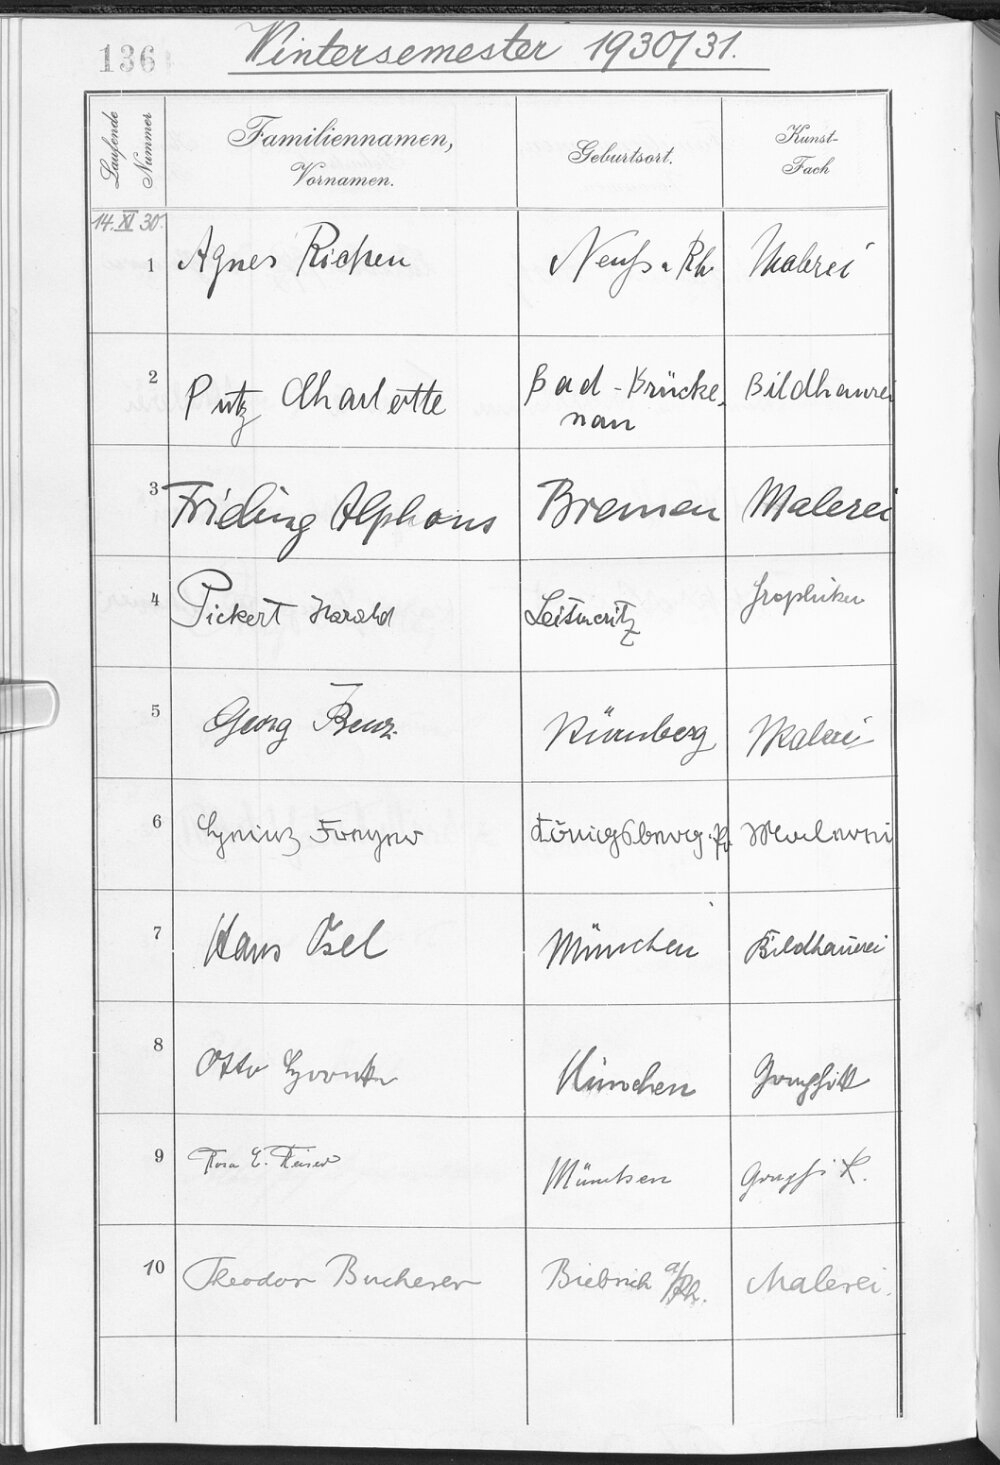 136
Wintersemester 1930/31.
Laufende Nummer
Familiennamen,
Vornamen.
Geburtsort.
Kunst-
Fach
14. XI 30.
1 Agnes Richen Neuss a Rh Malerei
2 Putz Charlotte Bad-Brücke-
nau Bildhauerei
3 Frieling Alphons Bremen Malerei
4 Pickert Harald Leitmeritz Graphiker
5 Georg Nürnberg Malerei
6 Königsberg Pr Malerei
7 Hans Osel München Bildhauerei
8 Otto München Graphik
9 Rosa E. Keiser München Graphik.
10 Theodor Bucherer Biebrich a/Rh. Malerei.